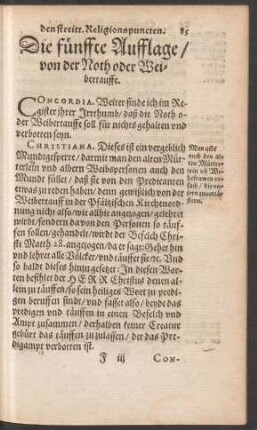 den streitt. Religionspuncten. 85
Die fünffte Aufflage/
von der Noth oder Wei-
bertauffe.
CONCORDIA. Weiter finde ich im Re-
gister jhrer Irrthumb/ daß die Noth o-
der Weibertauffe soll für nichts gehalten und
verbotten seyn.
CHRISTIANA. Dieses ist ein vergeblich
Mundtgesperre/ darmit man den alten Müt-
terlein und albern Weibspersonen auch den
Mundt füllet/ daß sie von den Predicanten
etwas zu reden haben/ dann gemeltlich von der
Weibertauff in der Pfältzischen Kirchenord-
nung nicht also/ wie allhie angezogen/ gelehret
wirdt/ sondern da von den Personen so täuf-
fen sollen/ gehandelt/ wirdt der Befelch Chri-
sti Matth 28. angezogen/ da er sagt: Gehet hin
und lehret alle Völcker/ und täuffet sie/ &c. Und
so baldt dieses hinzu gesetzt: In diesen Wor-
ten befihlet der HERR Christus denen al-
lein zu täuffen/ so sein heiliges Wort zu predi-
gen beruffen sindt/ und fasset also/ beyde das
predigen und täuffen in einen Befelch und
Ampt zusammen/ derhalben keiner Creatur
gebürt das täuffen zu zulassen/ der das Pre-
digampt verbotten ist.
Man gibt
auch den al-
ten Mütter-
lein uñ Wei-
F iij CON-